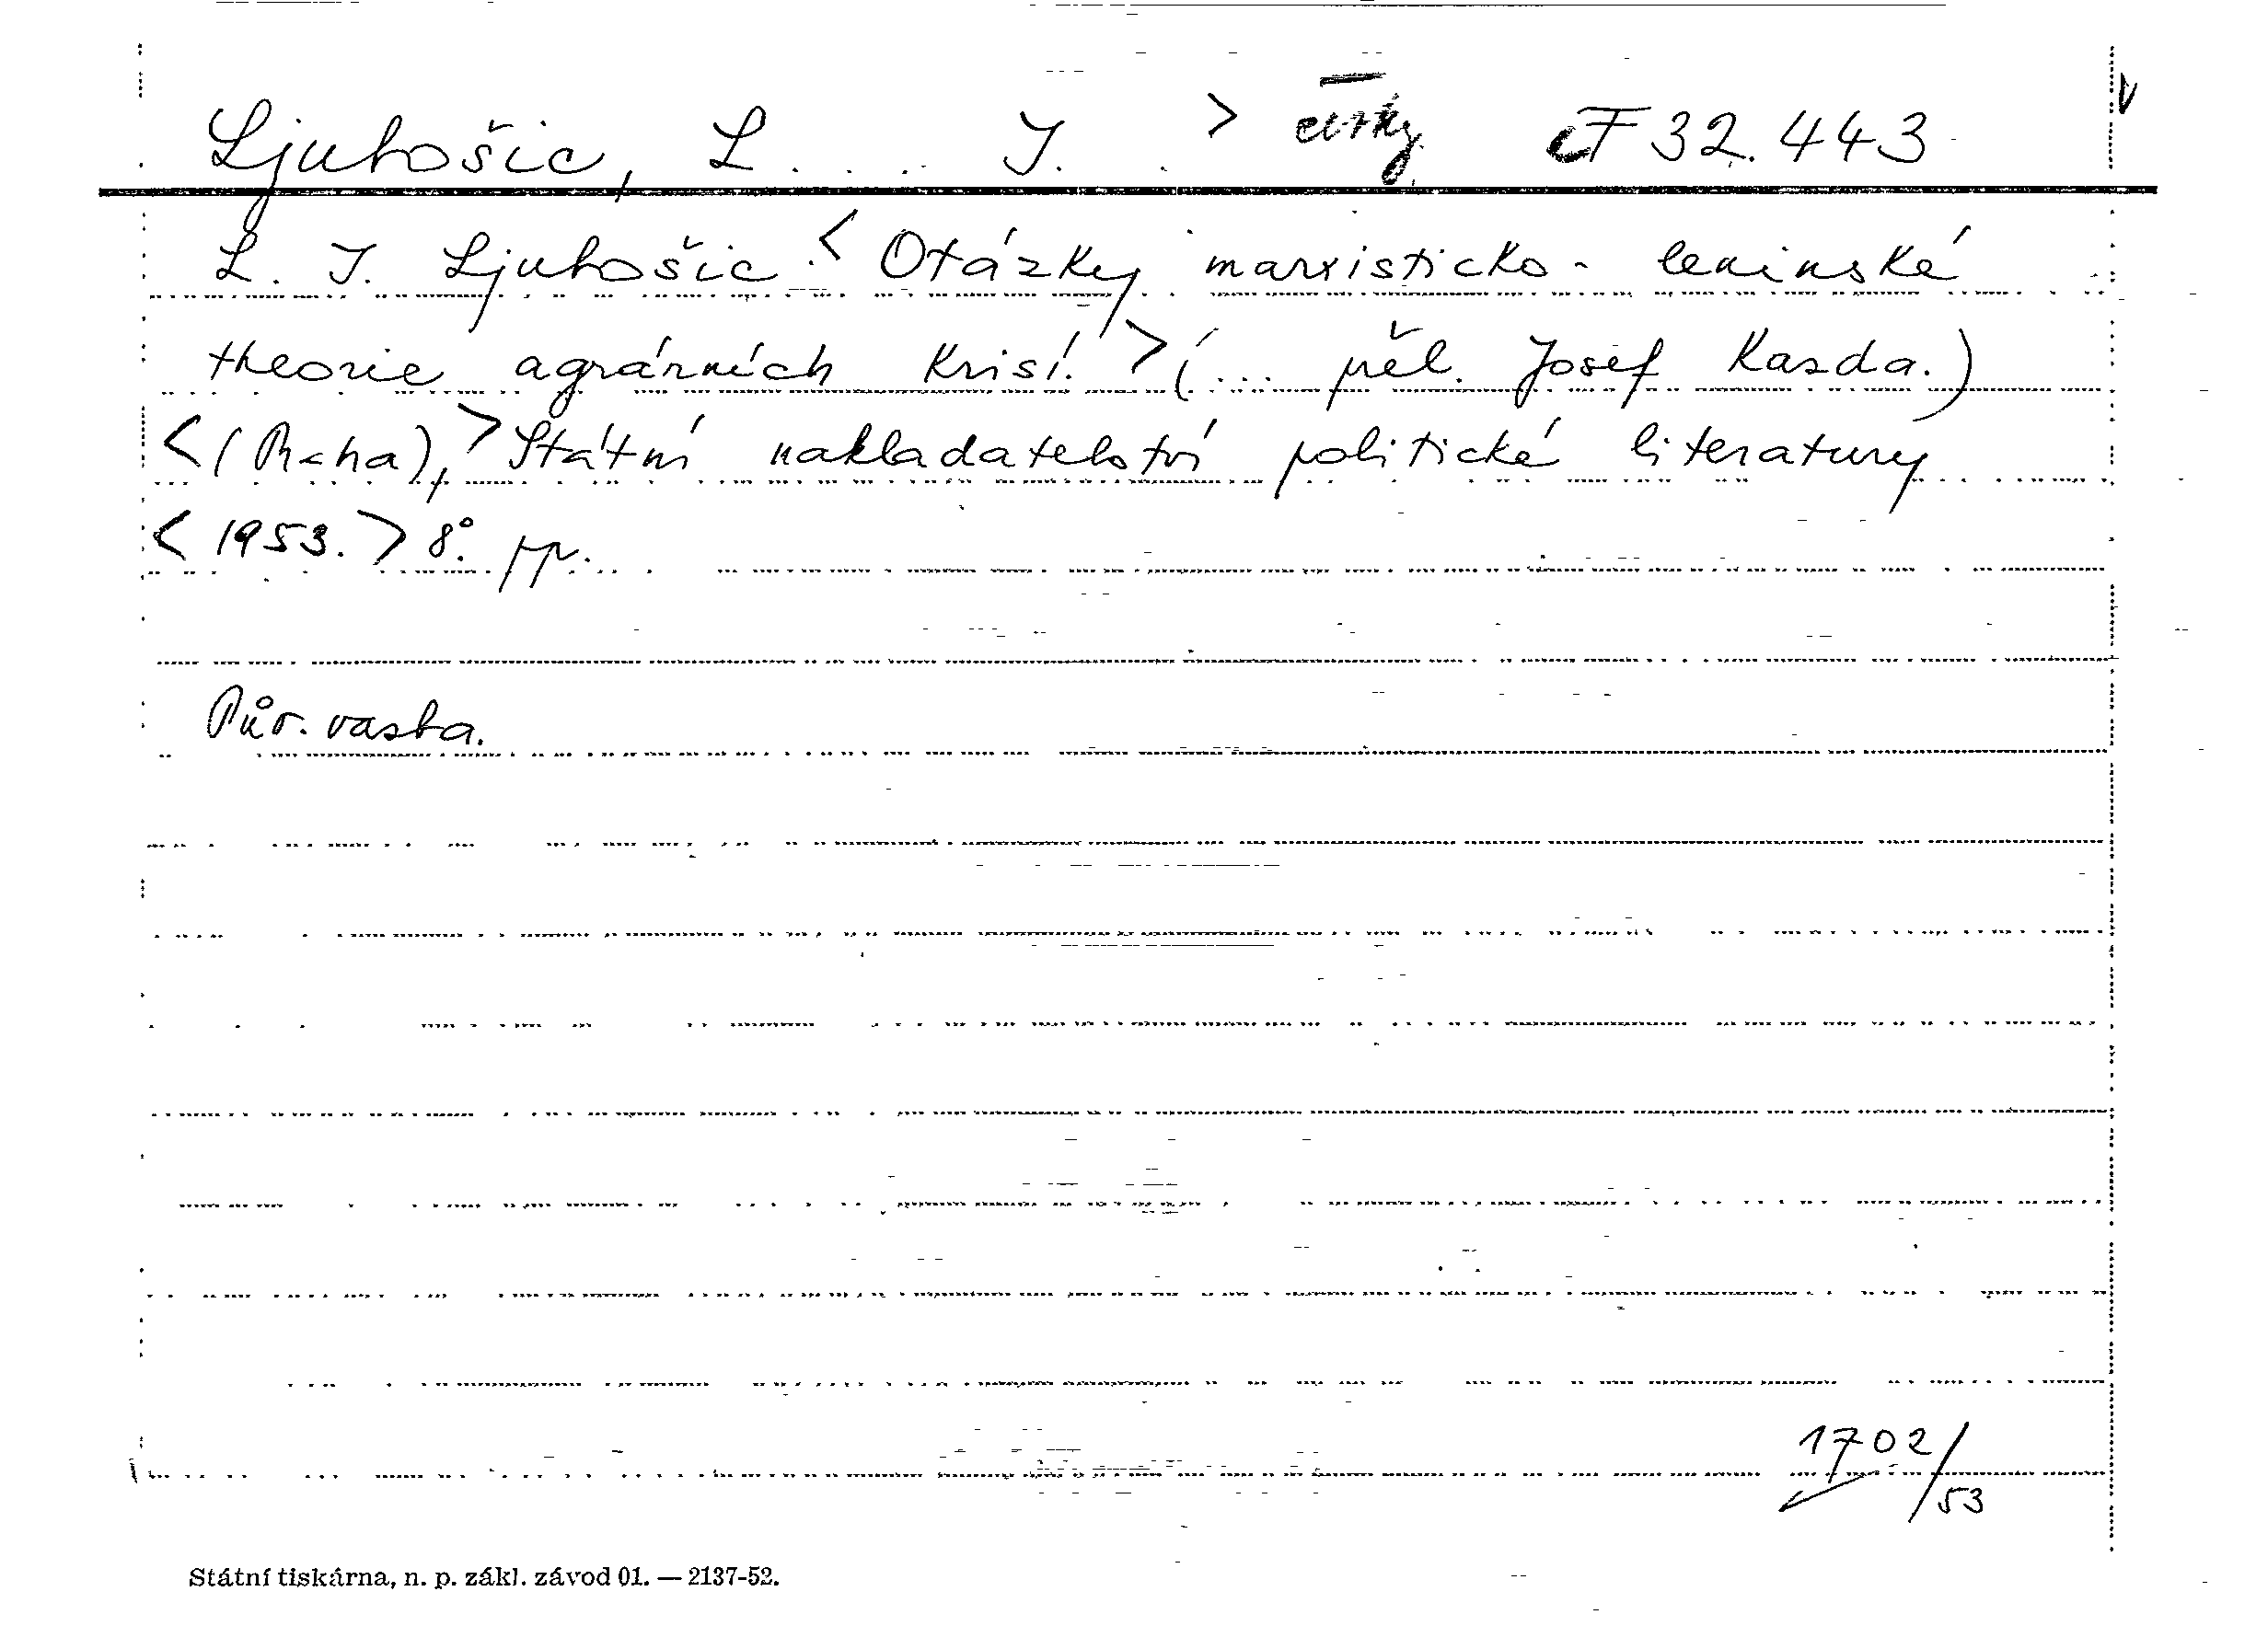 Ljubošic, L. . . J. . > česky F 32.443
L. J. Ljubošic < Otázky marxisticko-leninské
theorie agrárních krisí. > (... přel. Josef Kazda.)
< (Praha), > Státní nakladatelství politické literatury
< 1953. > 8°. pp.
Pův. vazba.
1702/53
Státní tiskárna, n. p. zákl. závod 01. — 2137-52.